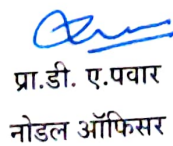 प्रा.डी. ए.पवार
नोडल ऑफिसर